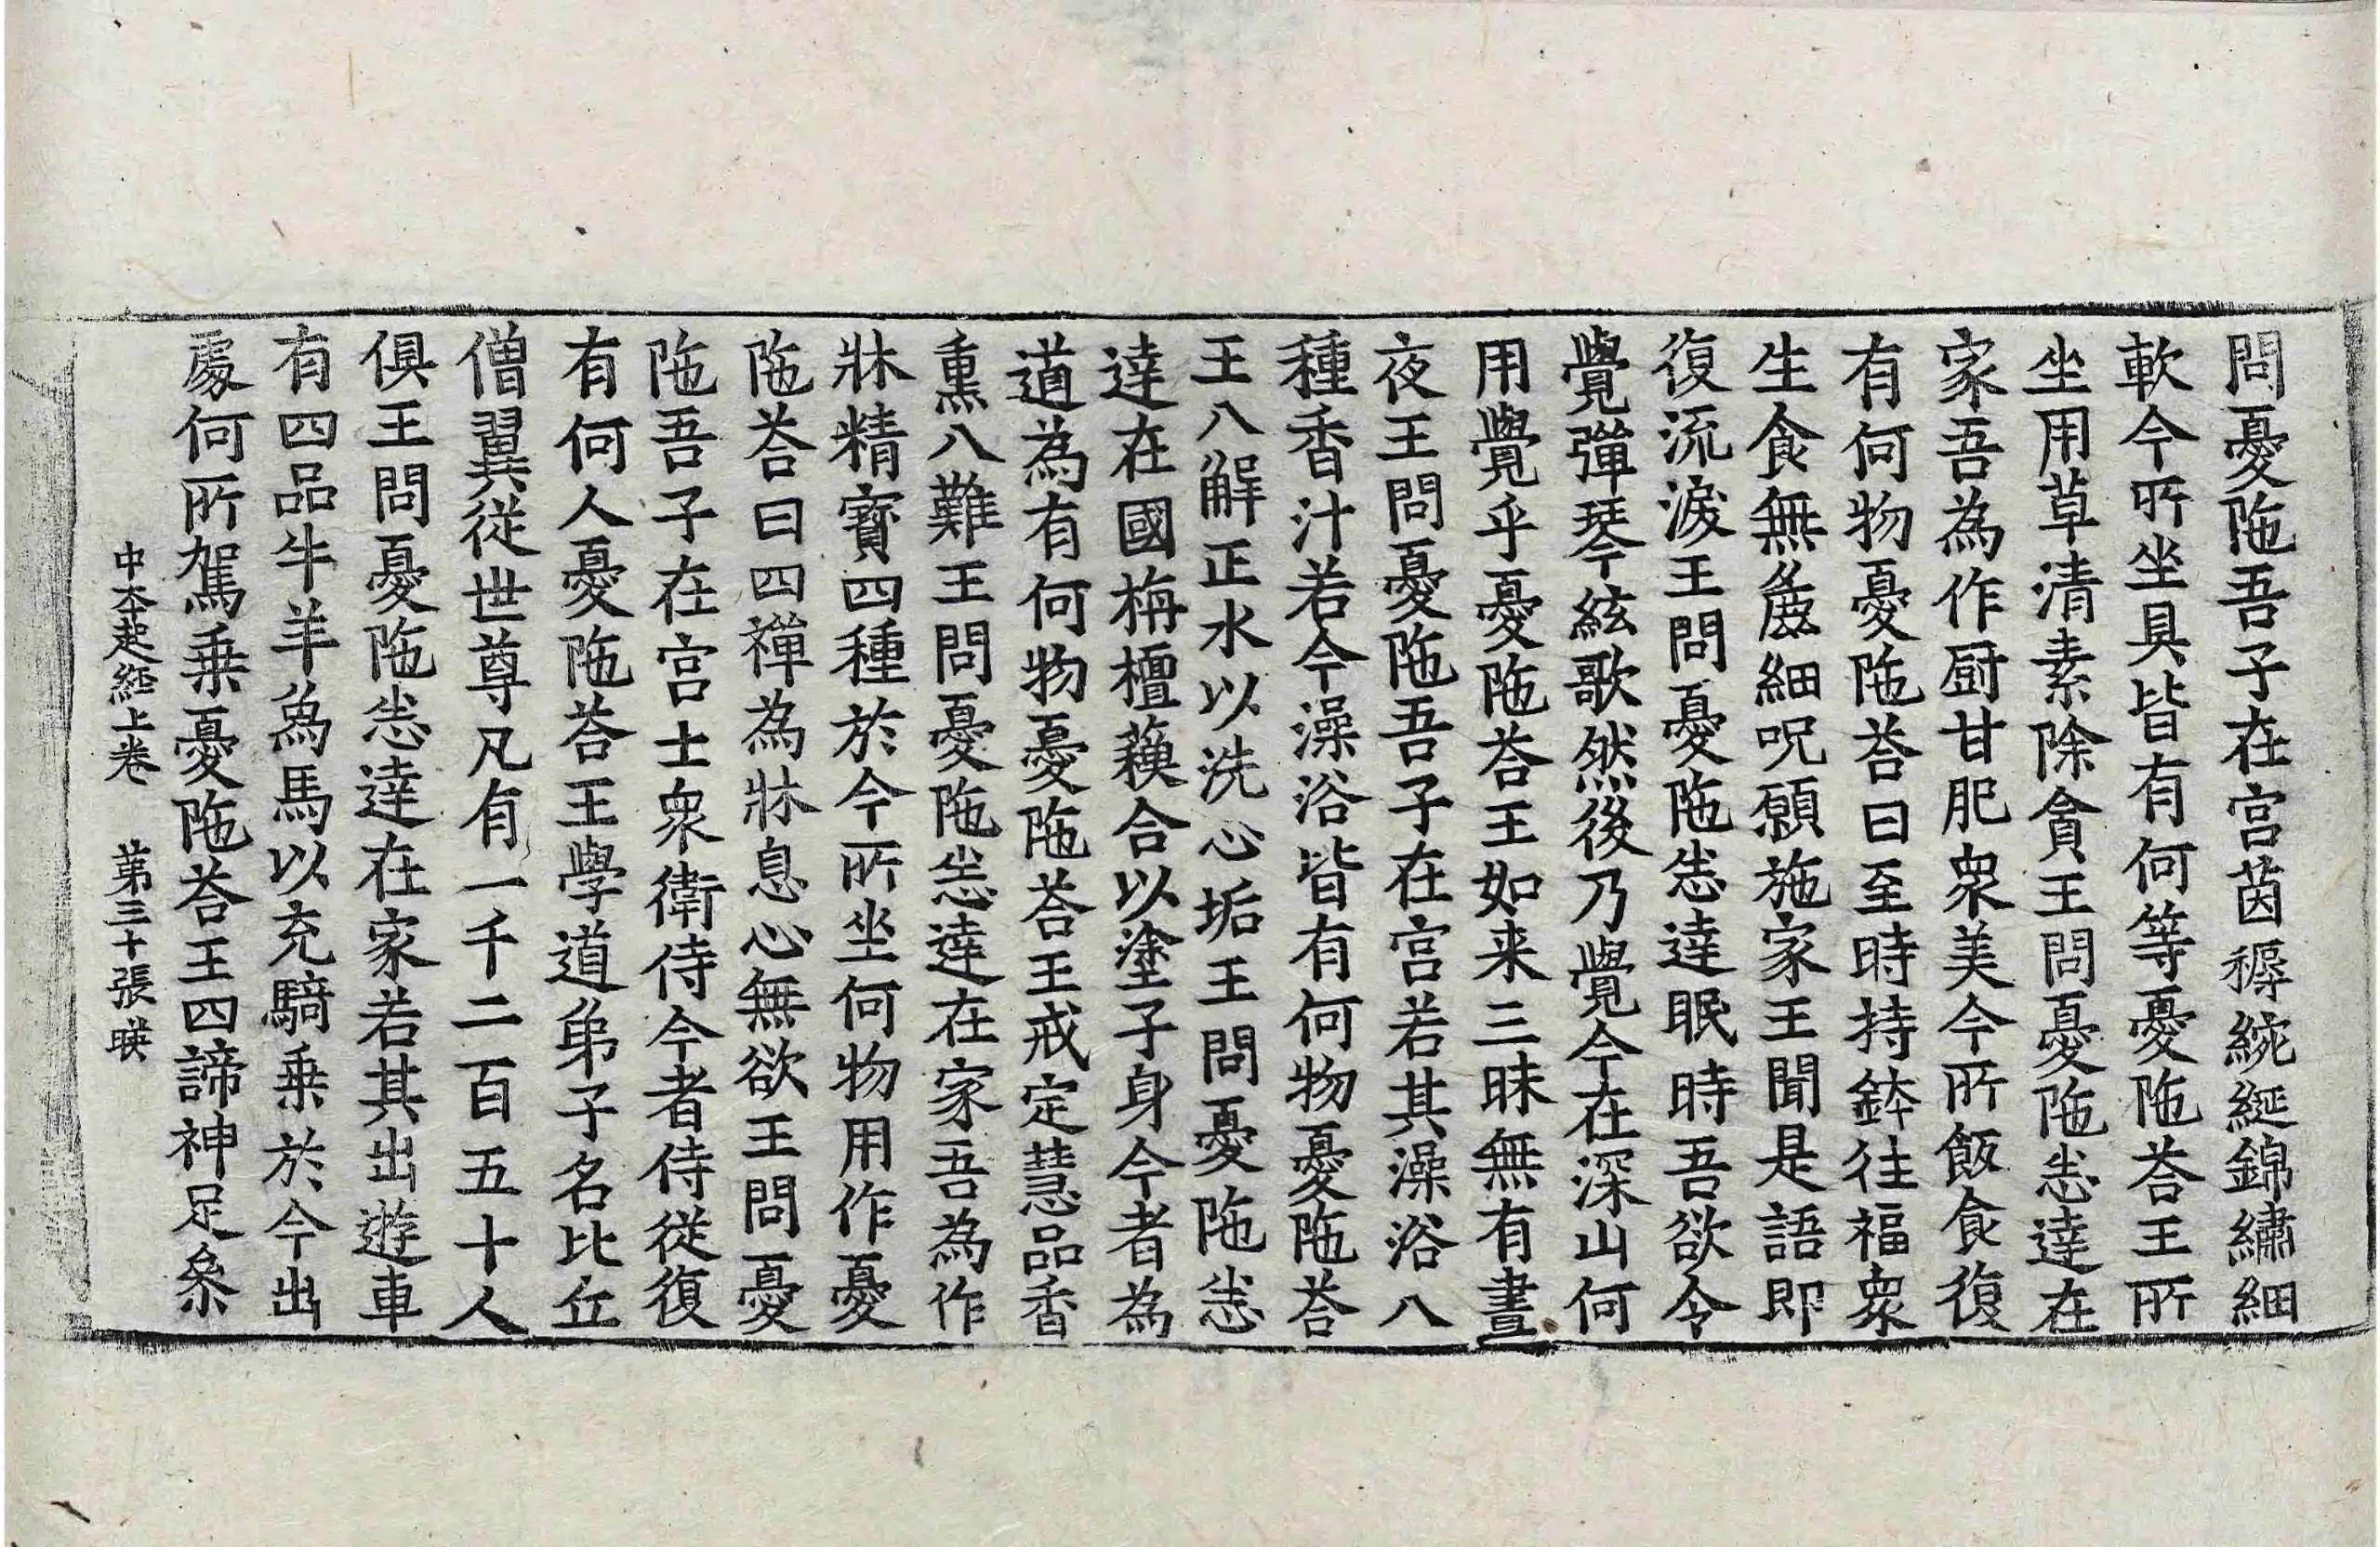 問憂陁吾子在宮茵蓐綩綖錦繡細
軟今所坐具皆有何等憂陁荅王所
坐用草清素除貪王問憂陁悉達在
家吾為作厨甘肥衆美今所飯食復
有何物憂陁荅曰至時持鉢往福衆
生食無麁細呪願施家王聞是語即
復流淚王問憂陁悉達眠時吾欲令
覺彈琴絃歌然後乃覺今在深山何
用覺乎憂陁荅王如来三昧無有晝
夜王問憂陁吾子在宮若其澡浴八
種香汁若今澡浴皆有何物憂陁荅
王八解正水以洗心垢王問憂陁悉
達在國栴檀蘓合以塗子身今者為
道為有何物憂陁荅王戒定慧品香
熏八難王問憂陁悉達在家吾為作
牀精寶四種於今所坐何物用作憂
陁荅曰四禪為牀息心無欲王問憂
陁吾子在宮士衆衛侍今者侍從復
有何人憂陁荅王學道弟子名比丘
僧翼從世尊凡有一千二百五十人
俱王問憂陁悉達在家若其出遊車
有四品牛羊象馬以充騎乗於今出
處何所駕乗憂陁荅王四諦神足叅
中夲起經上卷　第三十張　暎